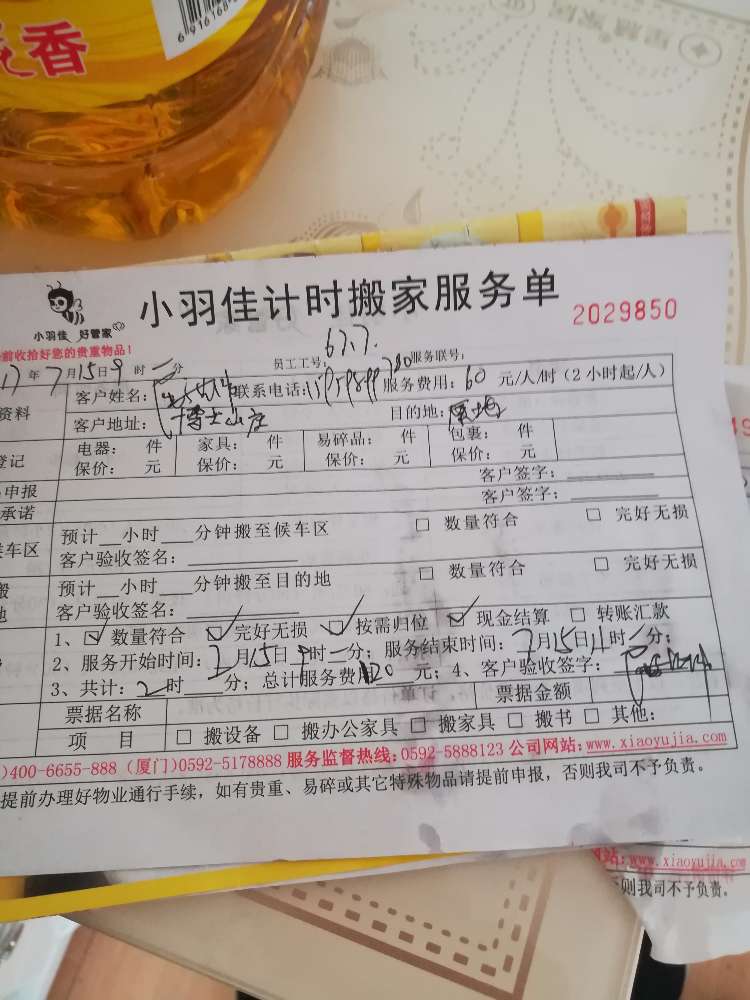 香
6916168
小羽佳 好管家
小羽佳计时搬家服务单
2029850
前收拾好您的贵重物品!
17年7月15日9时 分 员工工号: 服务联号:
资料
客户姓名: 联系电话: 服务费用: 60 元/人/时 (2小时起/人)
客户地址: 博士山庄 目的地:
登记
电器: 件 家具: 件 易碎品: 件 包裹: 件
保价: 元 保价: 元 保价: 元 保价: 元
申报 客户签字:
承诺 客户签字:
候车区
预计__小时___分钟搬至候车区 □ 数量符合 □ 完好无损
客户验收签名:
搬
地
预计__小时___分钟搬至目的地 □ 数量符合 □ 完好无损
客户验收签名:
1、☑ 数量符合 ☑ 完好无损 ☑ 按需归位 ☑ 现金结算 □ 转账汇款
2、服务开始时间: 7月15日9时 分; 服务结束时间: 7月15日11时 分;
3、共计: 2时 分; 总计服务费 120 元; 4、客户验收签字:
票据名称 票据金额
项 目 □ 搬设备 □ 搬办公家具 □ 搬家具 □ 搬书 □ 其他:
)400-6655-888 (厦门)0592-5178888 服务监督热线:0592-5888123 公司网站:www.xiaoyujia.com
提前办理好物业通行手续，如有贵重、易碎或其它特殊物品请提前申报，否则我司不予负责。
站:www.xiaoyujia.com
否则我司不予负责。